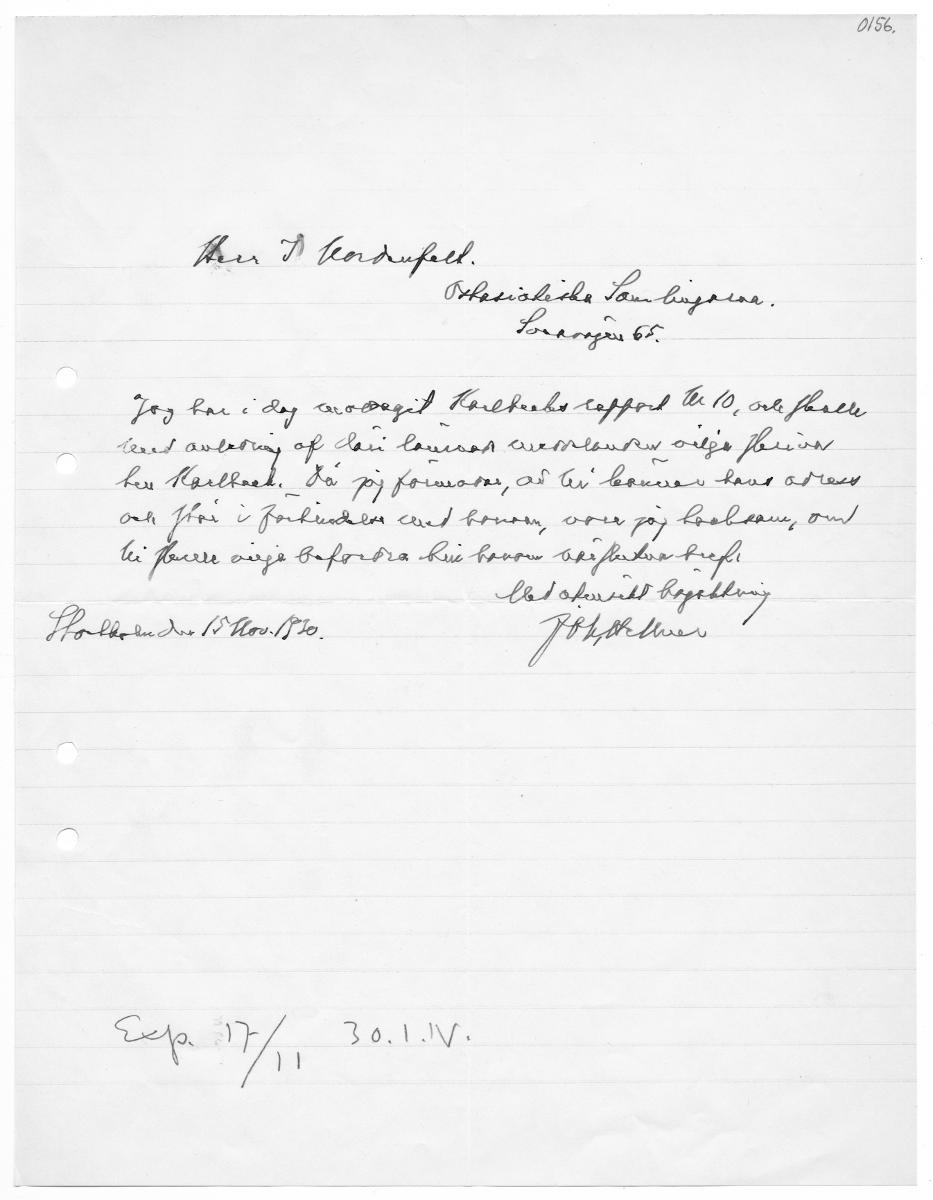 0156.
Herr I Nordenfelt.
Östasiatiska Samlingarna.
Sveavägen 65.
Jag har i dag mottagit Karlbecks rapport Nr 10, och skulle
med anledning af däri lämnade meddelanden vilja skriva
herr Karlbeck. Då jag förmodar, att Ni känner hans adress
och står i förbindelse med honom, vore jag tacksam, om
Ni skulle vilja befordra till honom närslutna bref.
Med utmärkt högaktning
Hellner
Stockholm den 15 Nov. 1930.
Exp. 17/11 30. I. N.